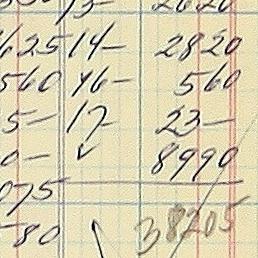 13- 2620
625 14- 2820
560 46- 560
5- 17- 23-
0- 8990
075
80 38205